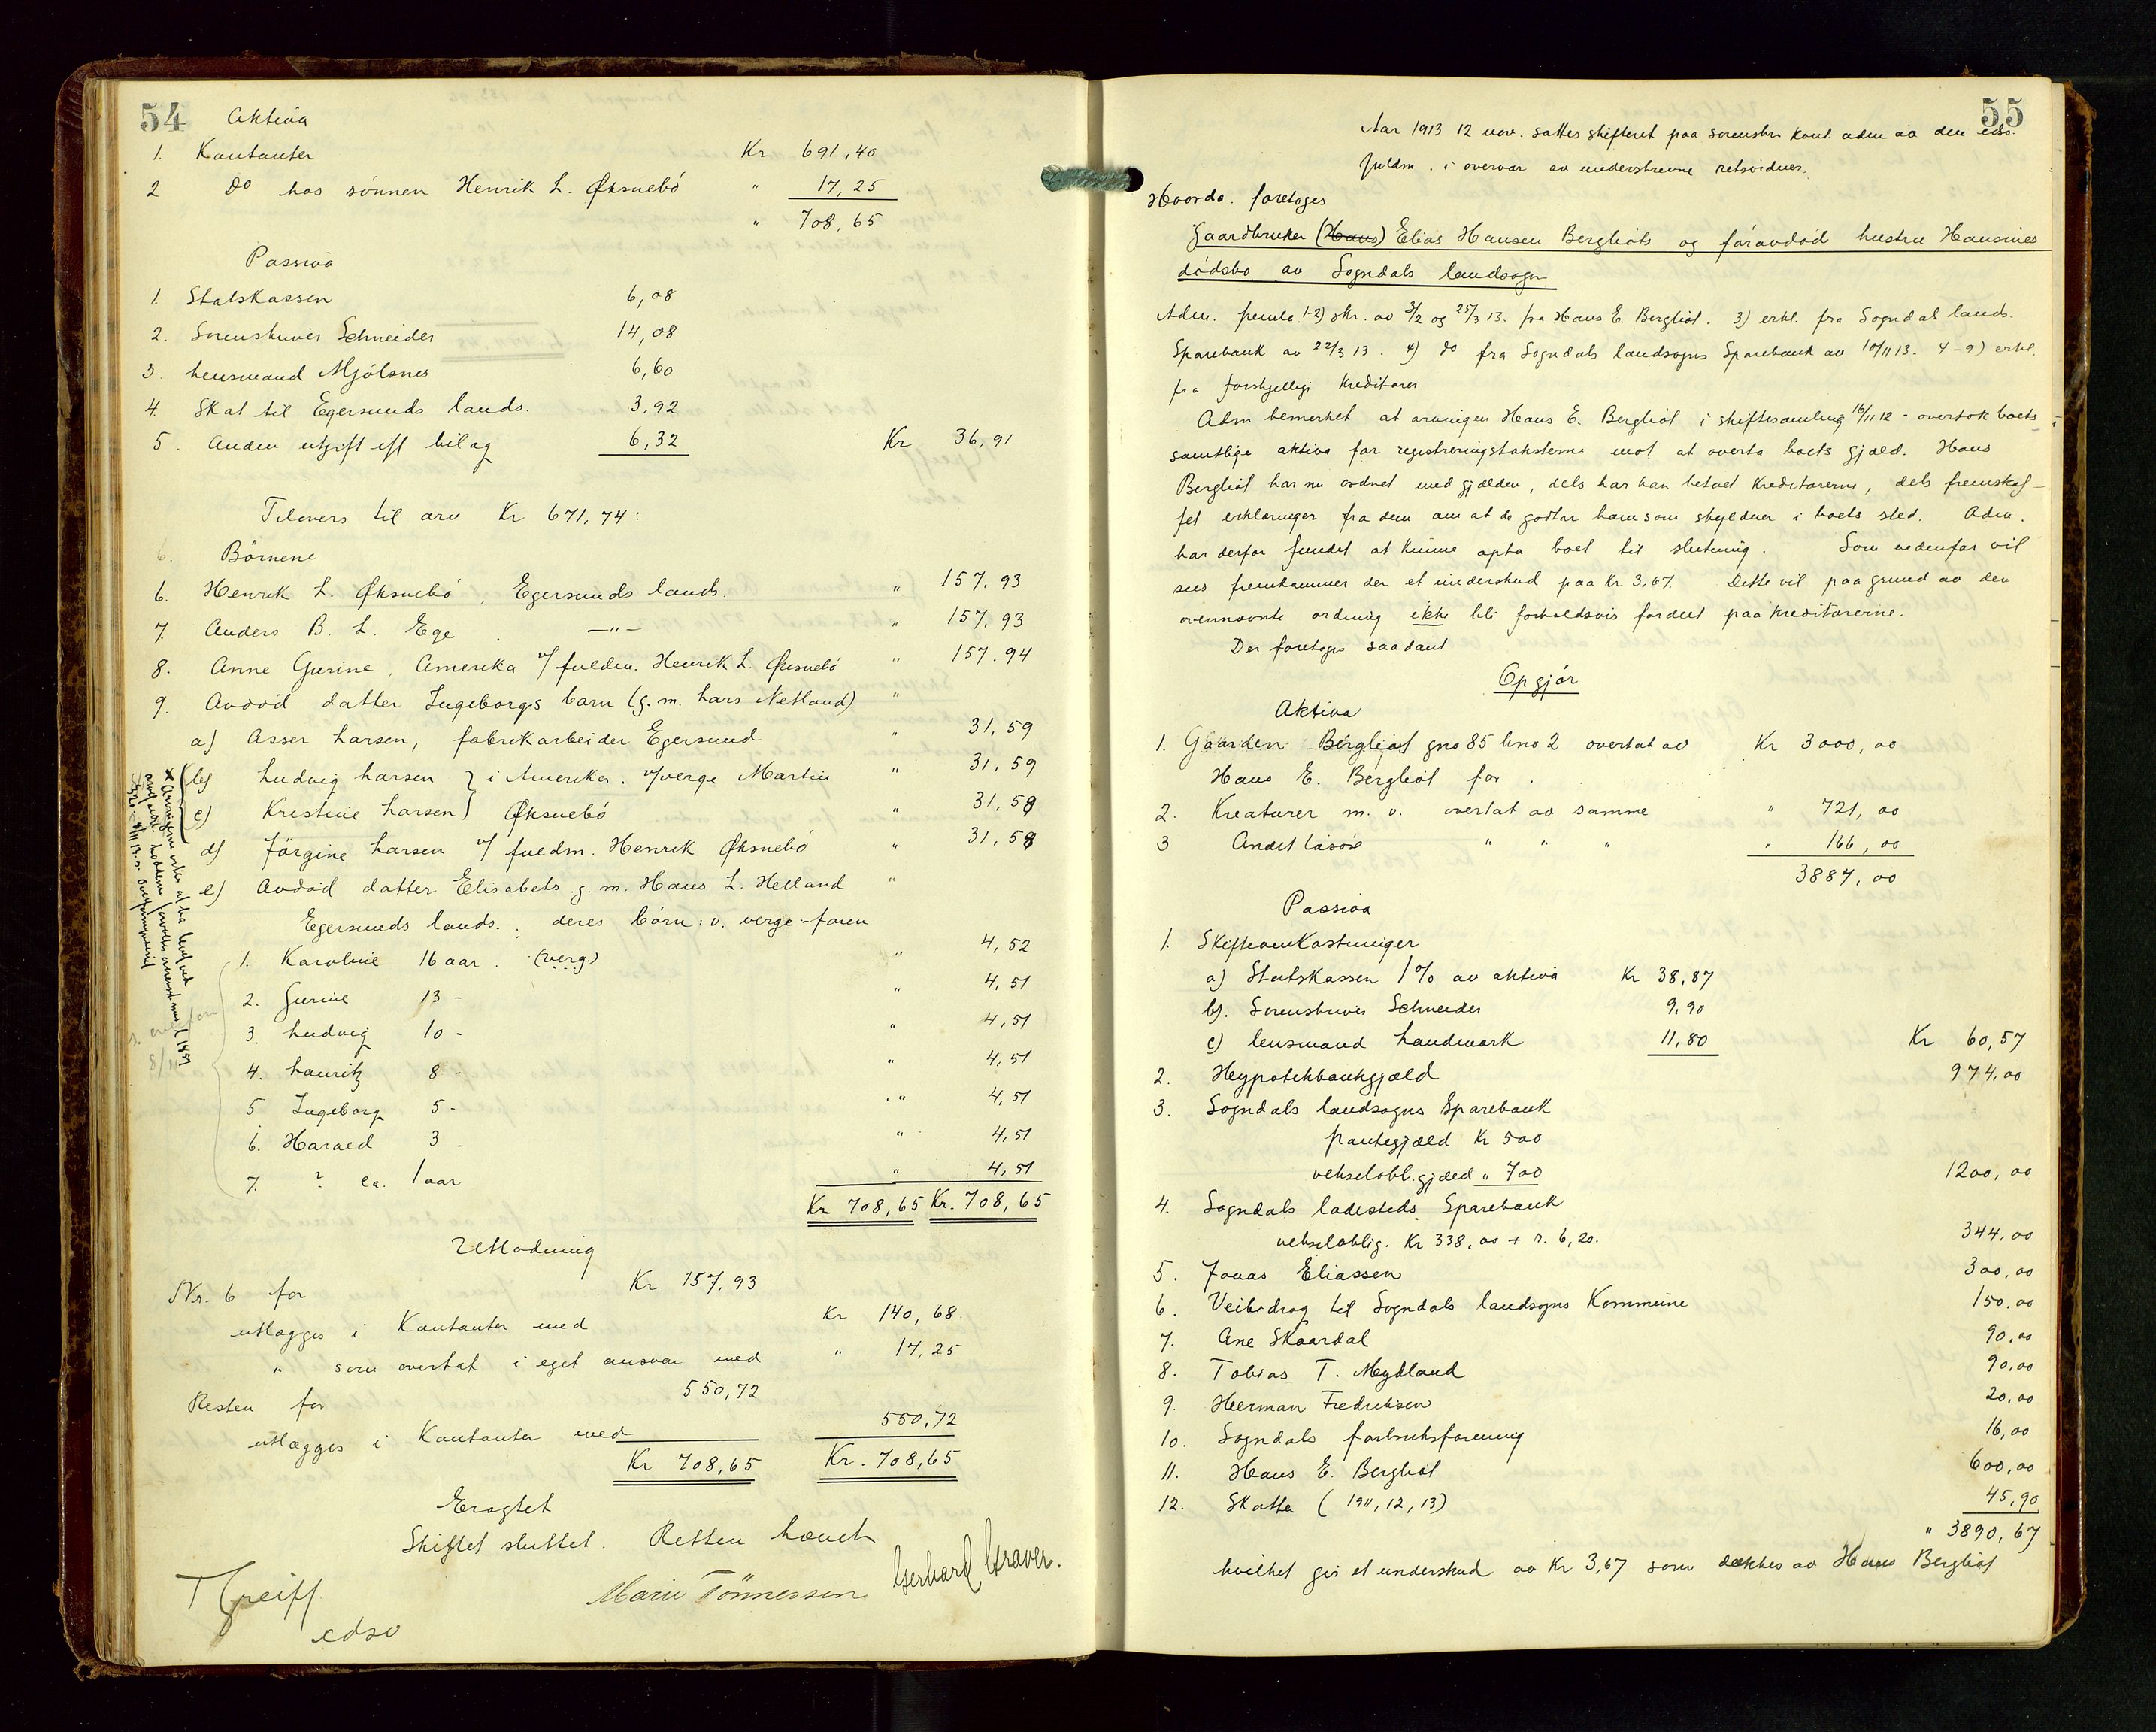 54
Aktiva
1. Kontanter Kr 691,40
2 do hos sønnen Henrik L. Øksnebö " 17,25
" 708,65
Passiva
1. Statskassen 6,08
2. Sorenskriver Schneider 14,08
3. Lensmand Mjølsnes 6,60
4. Skat til Egersunds lands. 3,92
5. Anden utgift ifl bilag 6,32 Kr 36,91
Tilovers til arv Kr 671,74:
6. Börnene
6. Henrik L. Øksnebö, Egersunds lands. " 157,93
7. Anders B. L. Ege —"— " 157,93
8. Anne Gurine, Amerika v/ fuldm. Henrik L. Øksnebö " 157.94
9. Avdöd datter Ingeborgs barn (g. m. Lars Netland) "
a) Asser Larsen, fabrikarbeider Egersund " 31,59
b) Ludvig Larsen } i Amerika. v/verge Martin " 31,59
c) Kristine Larsen } Øksnebö " 31,58
d) Jörgine Larsen v/ fuldm. Henrik Øksnebö " 31,58
e) Avdöd datter Elisabets g. m. Hans L. Helland "
Egersunds lands. : deres börn: v. verge faren
1. Karoline 16 aar. (verg.) " 4,52
2. Gurine 13 - " 4,51
3. Ludvig 10 - " 4,51
4. Lauritz 8 - " 4,51
5 Ingeborg 5 - " 4,51
6. Harald 3 - " 4,51
7. ? ca. 1 aar " 4,51
Kr 708,65 Kr. 708,65
Utlodning
Nr. 6 for Kr 157,93
utlægges i Kontanter med Kr 140,68.
" som overtat i eget ansvar med " 17,25
Resten for 550,72
utlægges i Kontanter med 550,72
Kr 708,65 Kr. 708,65
Eragtet
Skiftet sluttet. Retten hævet
T Greiff
edsv
Marie Tönnessen
Gerhard Graver.
55
Aar 1913 12 nov. sattes skifteret paa sorenskr kont. adm av den eds.
fuldm. i overvær av underskrevne retsvidner.
Hvorda. foretoges
Gaardbruker (Hans) Elias Hansen Bergliots og föravdöd hustru Hansines
dödsbo av Sogndals landsogn
Adm. fremla. 1-2) skr. av 3/2 og 25/3 13. fra Hans E. Bergliot. 3) erkl. fra Sogndal lands.
Sparebank av 22/3 13. 4) do fra Sogndals landsogns Sparebank av 10/11 13. 4-9) erkl.
fra forskjellige Kreditorer
Adm bemerket at arvingen Hans E. Bergliot i skiftesamling 16/11 12 - overtok boets
samtlige aktiva for registreringstaksterne mot at overta boets gjæld. Hans
Bergliot har nu ordnet med gjælden, dels har han betalt Kreditorerne, dels fremskaf-
fet erklæringer fra dem om at de godtar ham som skyldner i boets sted. Adm.
har derfor fundet at kunne opta boet til slutning. Som nedenfor vil
sees fremkommer der et underskud paa Kr 3,67. Dette vil paa grund av den
ovennævnte ordning ikke bli forholdsvis fordelt paa Kreditorerne.
Der foretoges saadant
Opgjör
Aktiva
1. Gaarden Bergliot gno 85 bno 2 overtat av Kr 3000,00
Hans E. Bergliot for
2. Kreaturer m. v. overtat av samme " 721,00
3 Andet lösöre " " " " 166,00
3887,00
Passiva
1. Skifteomkostninger
a) Statskassen 1% av aktiva Kr 38,87
b). Sorenskriver Schneider 9,90
c) Lensmand Landmark 11,80 Kr 60,57
2. Hypotekbankgjæld 974,00
3. Sogndals landsogns Sparebank
pantegjæld Kr 500
vekselobl.gjæld " 700 1200,00
4. Sogndals ladesteds Sparebank
vekseloblig. Kr 338,00 + r. 6,20. 344,00
5. Jonas Eliassen 300,00
6. Veibidrag til Sogndals landsogns Kommune 150,00
7. Ane Skaardal 90,00
8. Tobias T. Mydland 90,00
9. Herman Fredriksen 20,00
10. Sogndals forbruksforening 16,00
11. Hans E. Bergliot 600,00
12. Skatter (1911, 12, 13) 45,90
" 3890,67
hvilket gir et underskud av Kr 3,67 som dækkes av Hans Bergliot